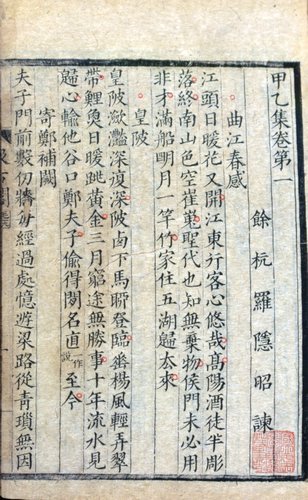 甲乙集卷第一
餘杭羅隱昭諫
曲江春感
江頭日暖花又開江東行客心悠哉髙陽酒徒半彫
落終南山色空崔嵬聖代也知無棄物侯門未必用
非才滿船明月一竿竹家住五湖歸去來
皇陂
皇陂瀲灔深復深陂西下馬聊登臨垂楊風輕弄翠
帶鯉魚日暖跳黃金三月窮途無勝事十年流水見
歸心輸他谷口鄭夫子偷得閑名直一作說至今
寄鄭補闕
夫子門前數仞牆每經過處憶遊梁路從青瑣無因